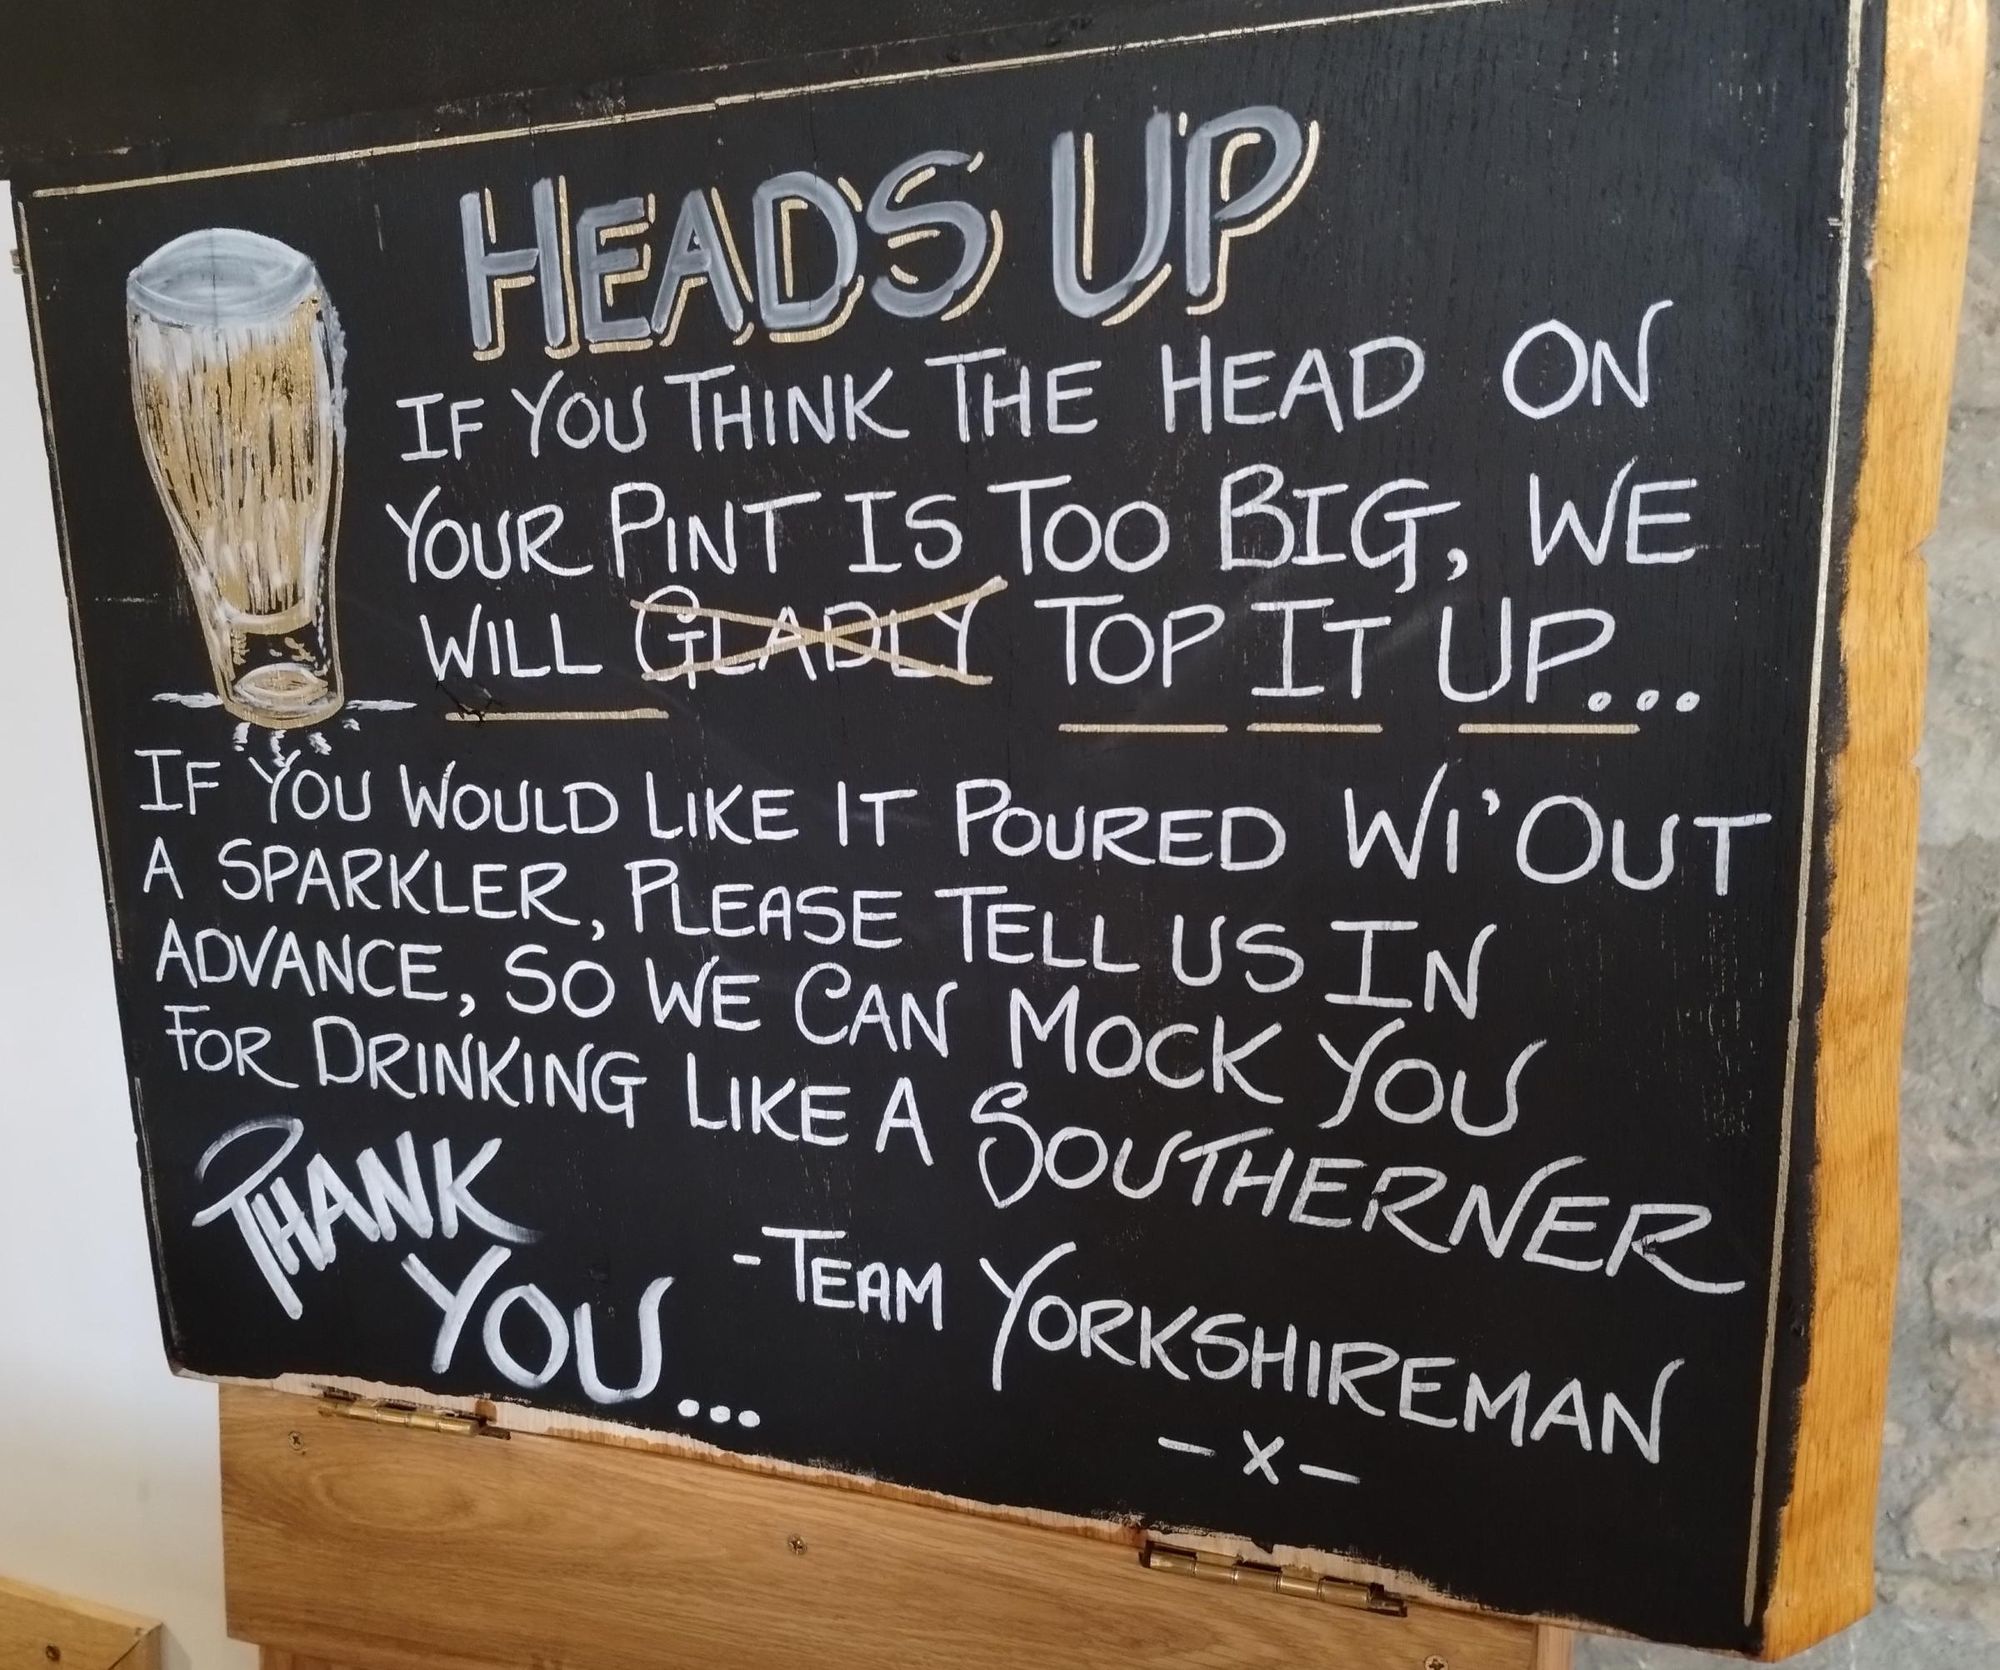 HEADS UP
IF YOU THINK THE HEAD ON
YOUR PINT IS TOO BIG, WE
WILL GLADLY TOP IT UP...
IF YOU WOULD LIKE IT POURED WI'OUT
A SPARKLER, PLEASE TELL US IN
ADVANCE, SO WE CAN MOCK YOU
FOR DRINKING LIKE A SOUTHERNER
THANK
YOU...
-TEAM YORKSHIREMAN
-X-